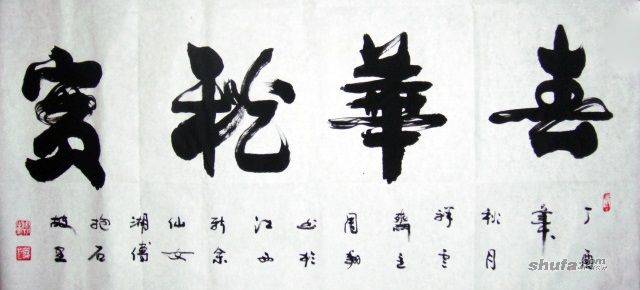 春華秋實
丁酉
年
秋月
祥雲
齋主
周翔
书於
江西
新余
仙女
湖傅
抱石
故里